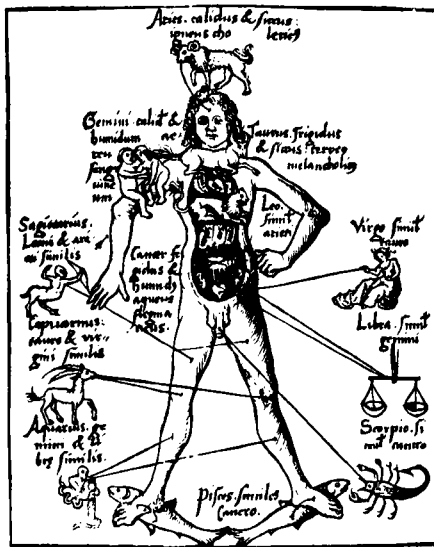 Aries. calidus & siccus
igneus cho lericus
Gemini calid9 &
humidum ae-
reu
sang
uine
um
Taurus frigidus
& siccus terreus
melancholicus
Leo.
simil
arieti
Sagitarius
Leoni & ari
eti similis
Cancer fr
igidus &
humidus
aqueus
flegma
ticus
Virgo simil
tauro
Capricornus
tauro & vir
gini similis
Libra. simil
gemini
Aquarius. ge
mini & li
bre similis.
Scorpio. si
mil cancro
Pisces. similes
Cancro.